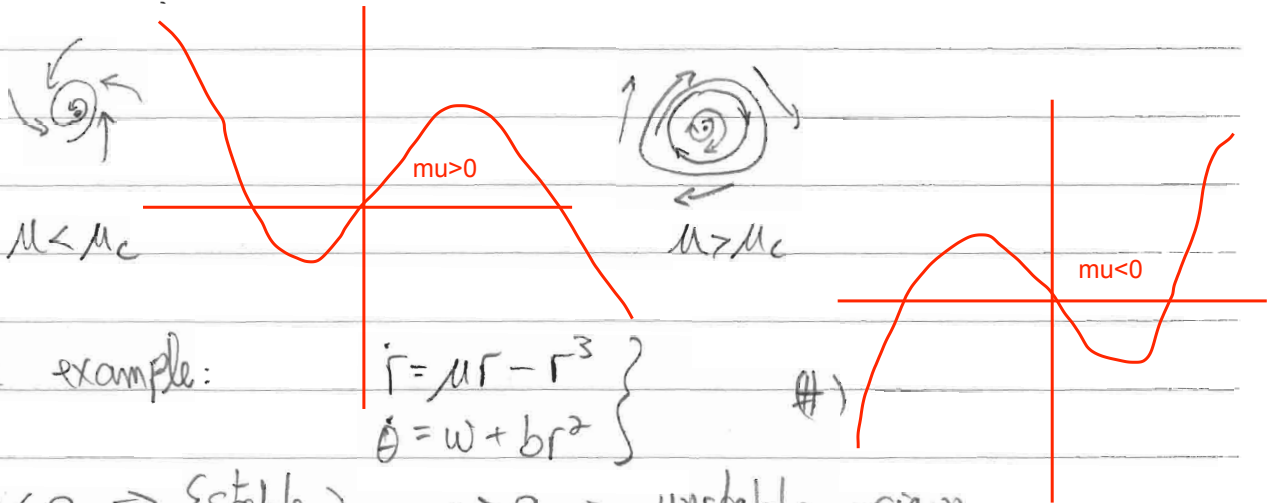 mu>0
μ < μc
μ > μc
mu<0
example:
ṙ = μr - r³ }
θ̇ = w + br² }
#)